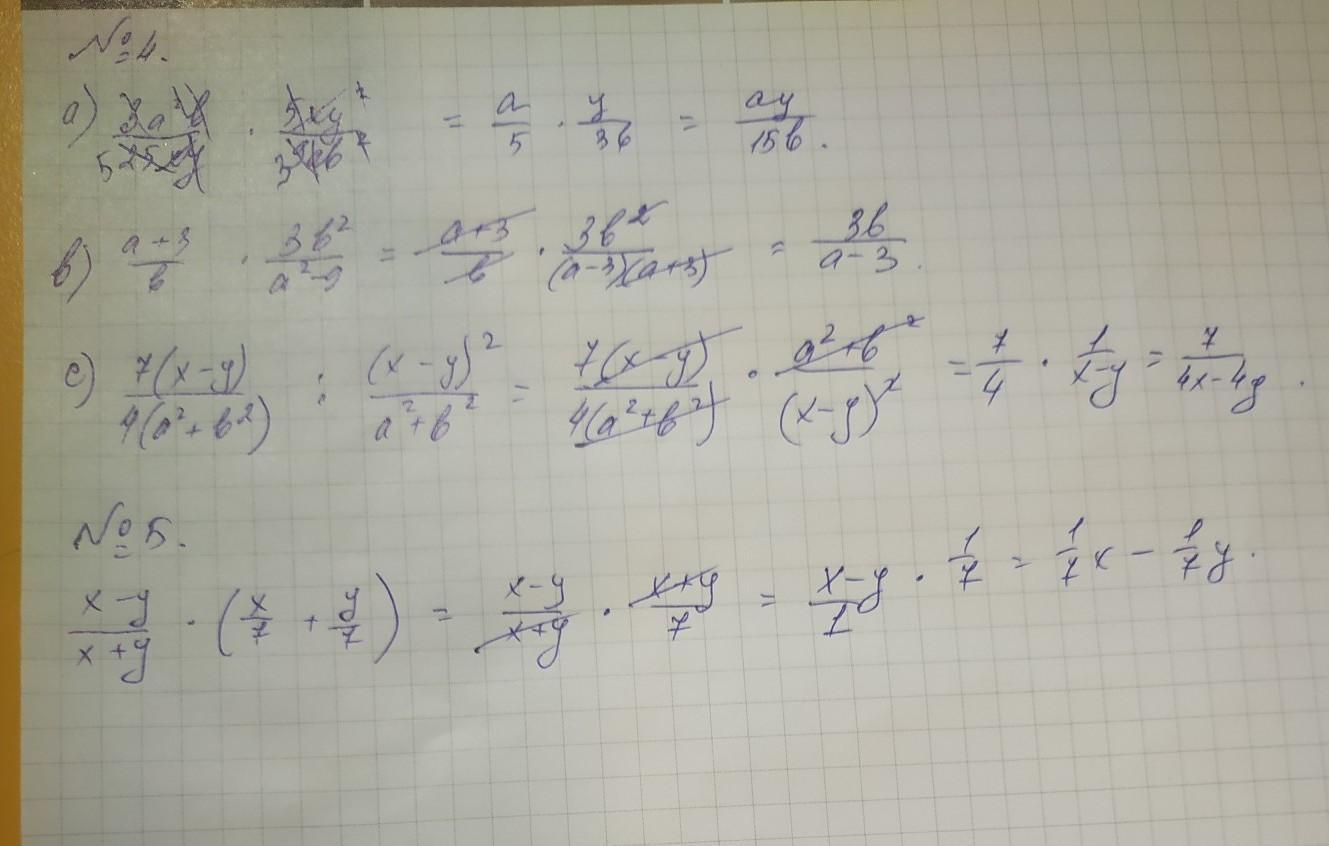 №4.
a) 3a²b / 25xy · 5xy² / 9ab² = a/5 · y/3b = ay/15b.
b) a+3/b · 3b²/a²-9 = a+3/b · 3b²/(a-3)(a+3) = 3b/a-3.
c) 7(x-y)/4(a²+b²) : (x-y)²/a²+b² = 7(x-y)/4(a²+b²) · a²+b²/(x-y)² = 7/4 · 1/x-y = 7/4x-4y.
№5.
x-y/x+y · (x/7 + y/7) = x-y/x+y · x+y/7 = x-y/1 · 1/7 = 1/7x - 1/7y.